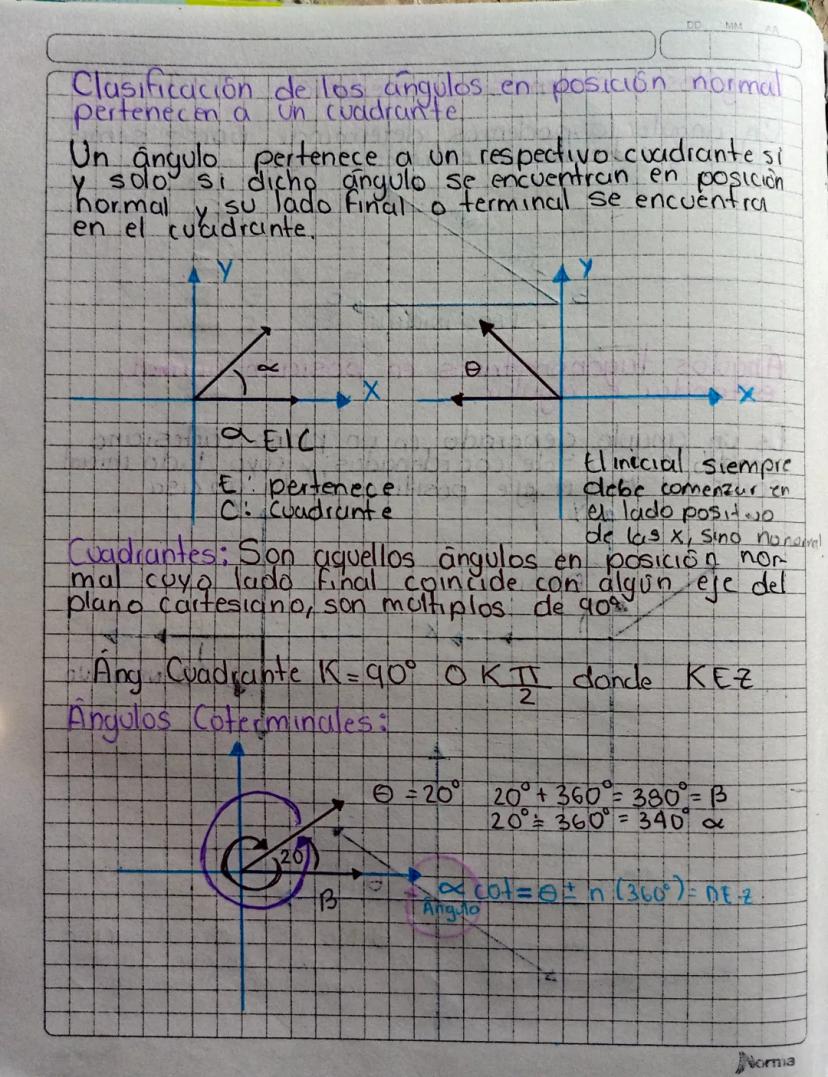 DD MM AA
Clasificación de los ángulos en posición normal
pertenecen a un cuadrante
Un ángulo pertenece a un respectivo cuadrante si
y solo si dicho ángulo se encuentran en posición
normal y su lado final o terminal se encuentra
en el cuadrante.
Y
Y
α
X
θ
X
α E I C
E: pertenece
C: Cuadrante
El inicial siempre
debe comenzar en
el lado positivo
de las X, sino
Cuadrantes: Son aquellos ángulos en posición nor-
mal cuyo lado final coincide con algún eje del
plano cartesiano, son múltiplos de 90°.
Áng Cuadrante K=90° O K π/2 donde K E Z
Ángulos Coterminales:
θ = 20° 20° + 360° = 380° = β
20° ± 360° = 340° α
20
β
α cot = θ ± n (360°) = n E Z.
Ángulo
Norma